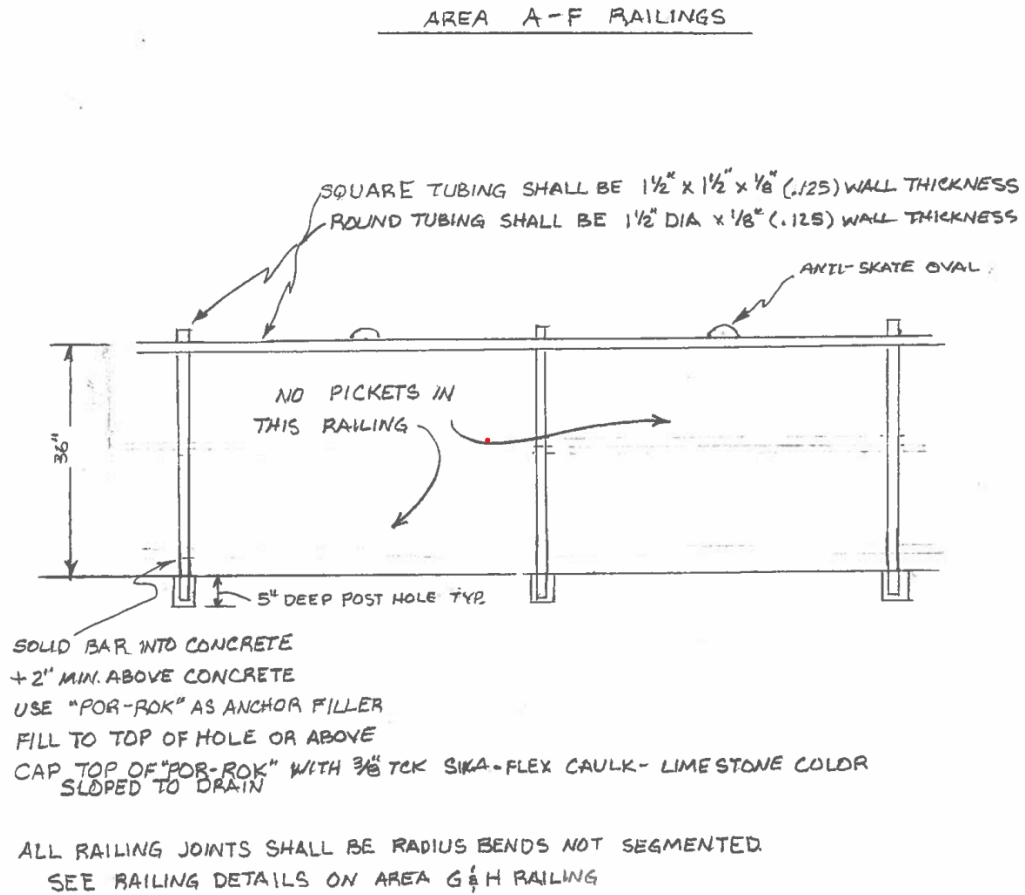 AREA A-F RAILINGS
SQUARE TUBING SHALL BE 1½" x 1½" x ⅛" (.125) WALL THICKNESS
ROUND TUBING SHALL BE 1½" DIA x ⅛" (.125) WALL THICKNESS
ANTI-SKATE OVAL
NO PICKETS IN
THIS RAILING
36"
5" DEEP POST HOLE TYP.
SOLID BAR INTO CONCRETE
+2" MIN. ABOVE CONCRETE
USE "POR-ROK" AS ANCHOR FILLER
FILL TO TOP OF HOLE OR ABOVE
CAP TOP OF "POR-ROK" WITH ⅜" TCK SIKA-FLEX CAULK- LIMESTONE COLOR
SLOPED TO DRAIN
ALL RAILING JOINTS SHALL BE RADIUS BENDS NOT SEGMENTED.
SEE RAILING DETAILS ON AREA G & H RAILING